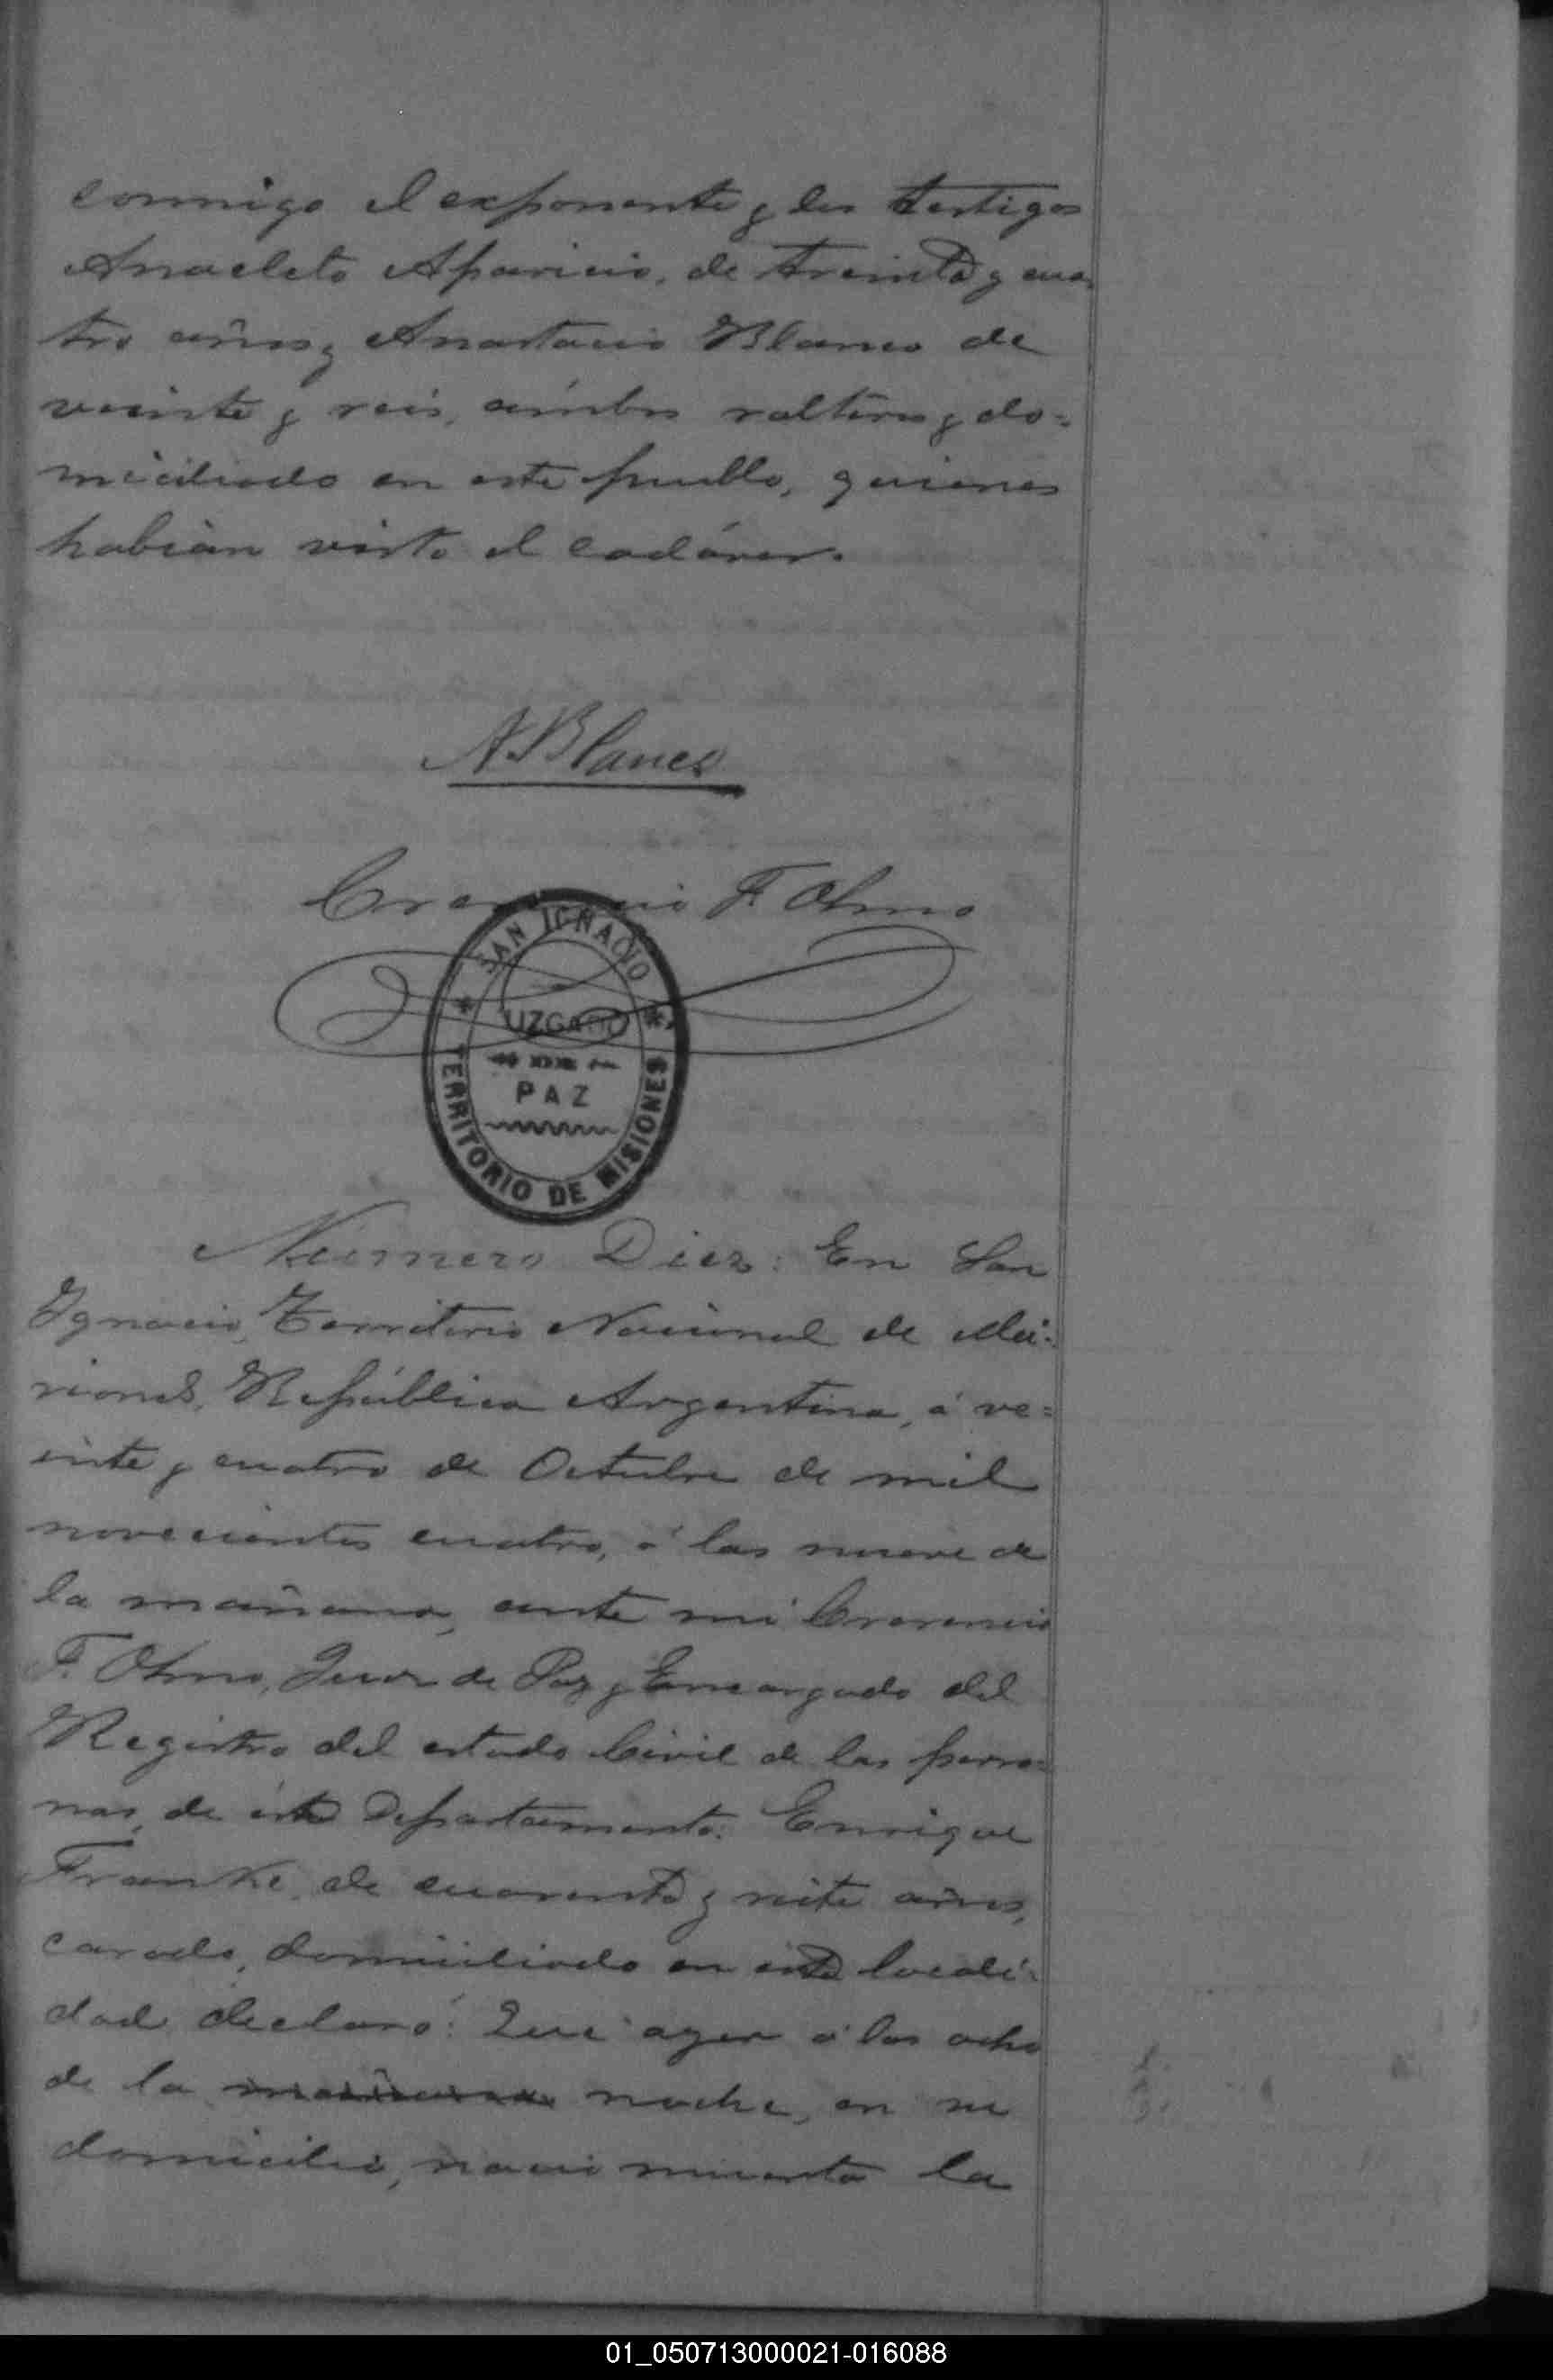 conmigo el exponente y los testigos
Anacleto Aparicio, de treinta y cua-
tro años y Anastacio Blanco de
veinte y seis, ámbos solteros y do=
miciliado en este pueblo, quienes
habían visto el cadáver.
A. Blanco
F. Olmo
SAN IGNACIO
JUZGADO
PAZ
TERRITORIO DE MISIONES
Número Diez: En San
Ignacio, Territorio Nacional de Mi-
siones, República Argentina, á ve=
inte y cuatro de Octubre de mil
novecientos cuatro, á las nueve de
la mañana, ante mi Crecencio
F. Olmo, Juez de Paz y Encargado del
Registro del estado Civil de las perso=
nas, de este Departamento: Enrique
Franke, de cuarenta y siete años,
casado, domiciliado en esta locali-
dad declaró: Que ayer á las ocho
de la mañana noche, en su
domicilio, nació muerta la
01_050713000021-016088